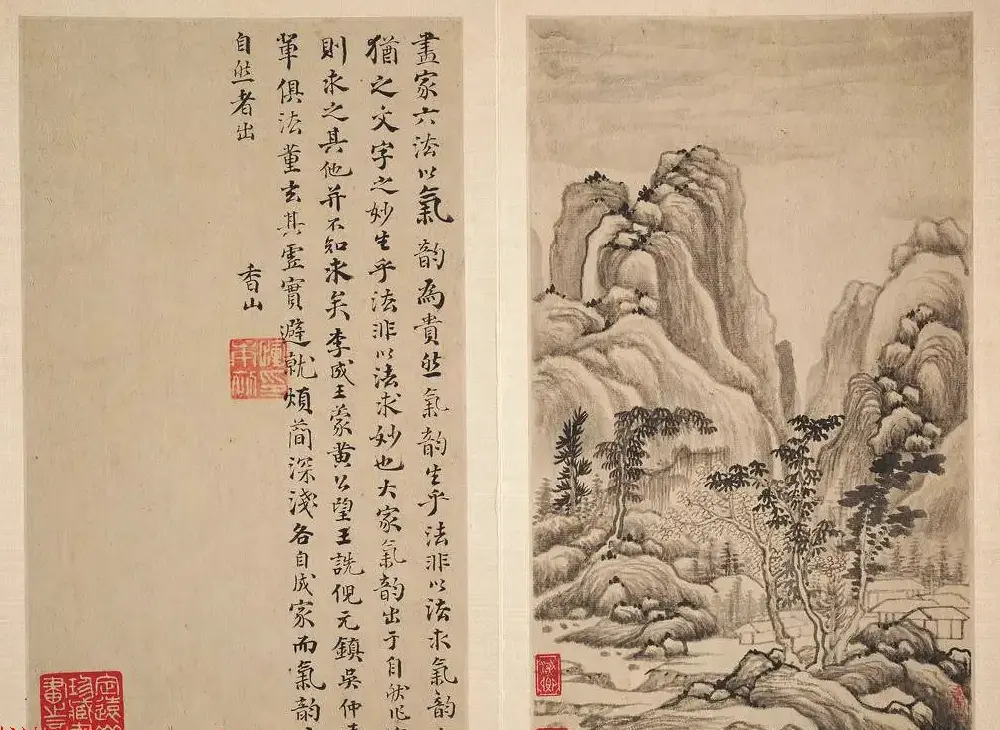 畫家六法以氣韵為貴然氣韵生乎法非以法求氣韵
猶之文字之妙生乎法非以法求妙也大家氣韵出于自然
則求之其他并不知求矣李成王蒙黃公望王詵倪元鎮吳仲
輩俱法董玄其虛實避就煩簡深淺各自成家而氣韵
自然者出
香山